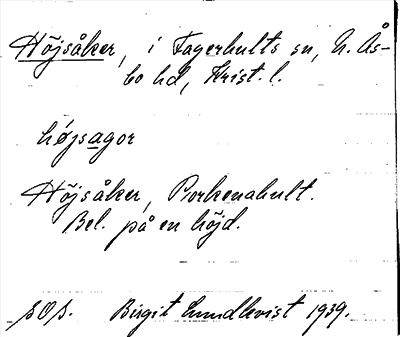 Höjsåker, i Fagerhults sn, N. Ås-
bo hd, Krist. l.
höjsagor
Höjsåker, Porkenahult.
Bel. på en höjd.
SOD. Birgit Lundkvist 1939.